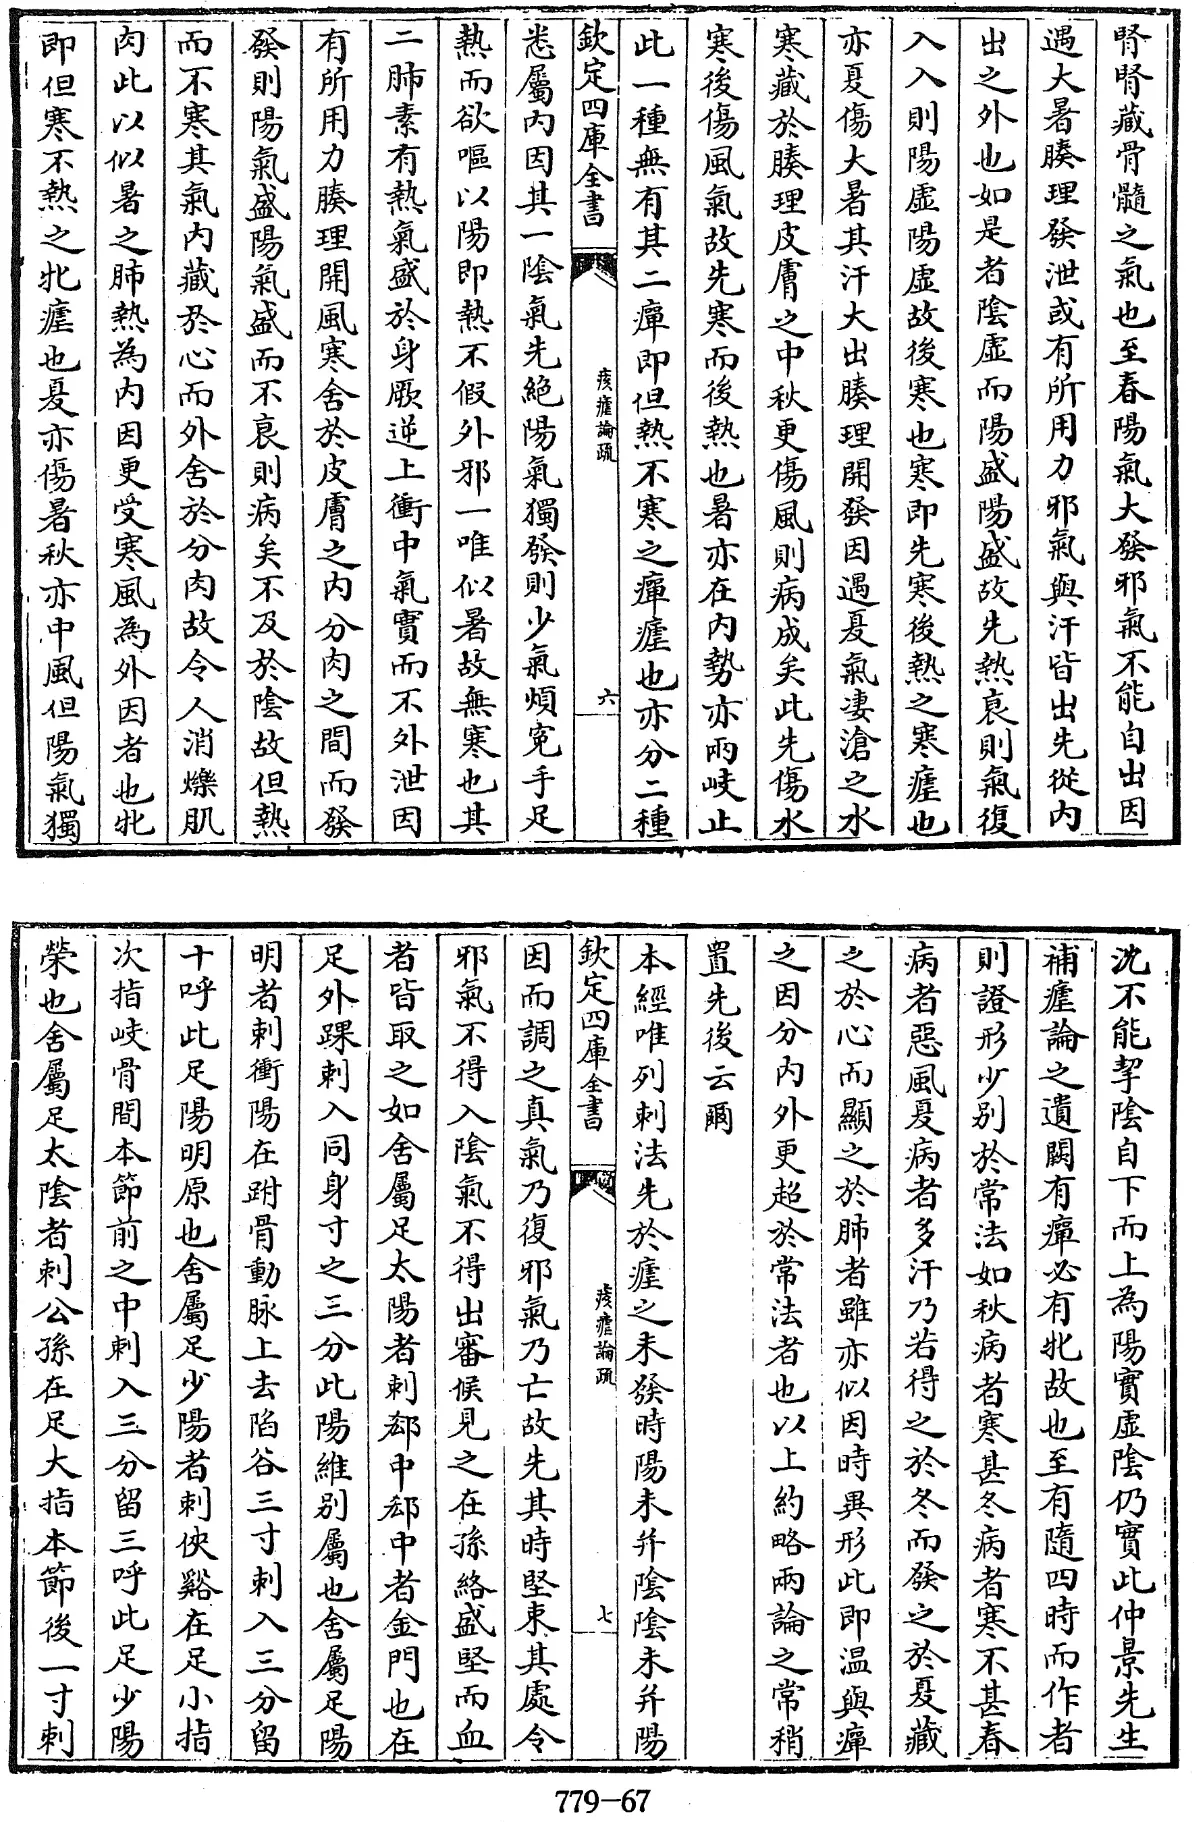 腎腎藏骨髓之氣也至春陽氣大發邪氣不能自出因
遇大暑腠理發泄或有所用力邪氣與汗皆出先從内
出之外也如是者陰虛而陽盛陽盛故先熱衰則氣復
入入則陽虛陽虛故後寒也寒即先寒後熱之寒瘧也
亦夏傷大暑其汗大出腠理開發因遇夏氣凄滄之水
寒藏於腠理皮膚之中秋更傷風則病成矣此先傷水
寒後傷風氣故先寒而後熱也暑亦在内勢亦兩岐止
此一種無有其二癉即但熱不寒之癉瘧也亦分二種
欽定四庫全書
痎瘧論疏
六
悉屬内因其一陰氣先絶陽氣獨發則少氣煩寃手足
熱而欲嘔以陽即熱不假外邪一唯似暑故無寒也其
二肺素有熱氣盛於身厥逆上衝中氣實而不外泄因
有所用力腠理開風寒舍於皮膚之内分肉之間而發
發則陽氣盛陽氣盛而不衰則病矣不及於陰故但熱
而不寒其氣内藏於心而外舍於分肉故令人消爍肌
肉此以似暑之肺熱為内因更受寒風為外因者也牝
即但寒不熱之牝瘧也夏亦傷暑秋亦中風但陽氣獨
沈不能挈陰自下而上為陽實虛陰仍實此仲景先生
補瘧論之遺闕有癉必有牝故也至有隨四時而作者
則證形少別於常法如秋病者寒甚冬病者寒不甚春
病者惡風夏病者多汗乃若得之於冬而發之於夏藏
之於心而顯之於肺者雖亦似因時異形此即温與癉
之因分内外更超於常法者也以上約略兩論之常稍
置先後云爾
本經唯列刺法先於瘧之未發時陽未并陰陰未并陽
欽定四庫全書
痎瘧論疏
七
因而調之真氣乃復邪氣乃亡故先其時堅束其處令
邪氣不得入陰氣不得出審候見之在孫絡盛堅而血
者皆取之如舍屬足太陽者刺郄中郄中者金門也在
足外踝刺入同身寸之三分此陽維別屬也舍屬足陽
明者刺衝陽在跗骨動脉上去陷谷三寸刺入三分留
十呼此足陽明原也舍屬足少陽者刺俠谿在足小指
次指岐骨間本節前之中刺入三分留三呼此足少陽
滎也舍屬足太陰者刺公孫在足大指本節後一寸刺
779-67